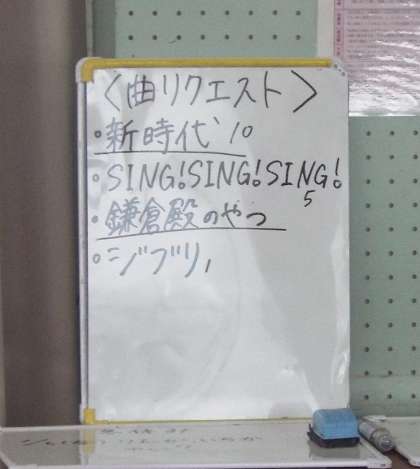 〈曲リクエスト〉
・新時代 10
・SING!SING!SING!
5
・鎌倉殿のやつ
・ジブリ